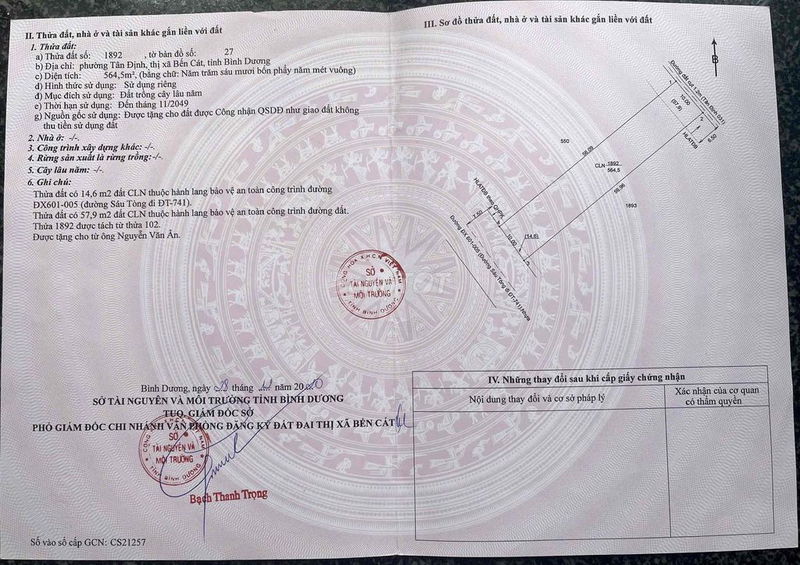 II. Thửa đất, nhà ở và tài sản khác gắn liền với đất
1. Thửa đất:
a) Thửa đất số: 1892 , tờ bản đồ số: 27
b) Địa chỉ: phường Tân Định, thị xã Bến Cát, tỉnh Bình Dương
c) Diện tích: 564,5m², (bằng chữ: Năm trăm sáu mươi bốn phẩy năm mét vuông)
d) Hình thức sử dụng: Sử dụng riêng
đ) Mục đích sử dụng: Đất trồng cây lâu năm
e) Thời hạn sử dụng: Đến tháng 11/2049
g) Nguồn gốc sử dụng: Được tặng cho đất được Công nhận QSDĐ như giao đất không
thu tiền sử dụng đất
2. Nhà ở: -/-.
3. Công trình xây dựng khác: -/-.
4. Rừng sản xuất là rừng trồng: -/-.
5. Cây lâu năm: -/-.
6. Ghi chú:
Thửa đất có 14,6 m2 đất CLN thuộc hành lang bảo vệ an toàn công trình đường
ĐX601-005 (đường Sáu Tòng đi ĐT-741).
Thửa đất có 57,9 m2 đất CLN thuộc hành lang bảo vệ an toàn công trình đường đất.
Thửa 1892 được tách từ thửa 102.
Được tặng cho từ ông Nguyễn Văn Ân.
CỘNG HÒA X.H.C.N VIỆT NAM
SỞ
TÀI NGUYÊN VÀ
MÔI TRƯỜNG
TỈNH BÌNH DƯƠNG
Bình Dương, ngày tháng năm 2020
SỞ TÀI NGUYÊN VÀ MÔI TRƯỜNG TỈNH BÌNH DƯƠNG
TUQ. GIÁM ĐỐC SỞ
PHÓ GIÁM ĐỐC CHI NHÁNH VĂN PHÒNG ĐĂNG KÝ ĐẤT ĐAI THỊ XÃ BẾN CÁT
SỞ
TÀI NGUYÊN VÀ
MÔI TRƯỜNG
TỈNH BÌNH DƯƠNG
Bạch Thanh Trọng
Số vào sổ cấp GCN: CS21257
III. Sơ đồ thửa đất, nhà ở và tài sản khác gắn liền với đất
B
10.00
(57,9)
HLATĐB
6.50
550
56.09
CLN
1892
564,5
56.96
1893
7.50
10.00
(14,6)
Đường ĐX 601-005 (Đường Sáu Tòng đi ĐT-741) Nhựa
IV. Những thay đổi sau khi cấp giấy chứng nhận
Nội dung thay đổi và cơ sở pháp lý
Xác nhận của cơ quan
có thẩm quyền